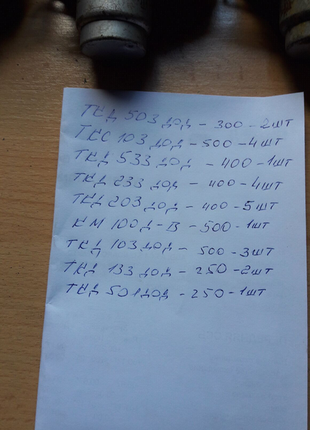 ТКД 503 ДОД - 300 - 2шт
ТКС 103 ДОД - 500 - 4шт
ТКД 533 ДОД - 400 - 1шт
ТКД 233 ДОД - 400 - 4шт
ТКД 203 ДОД - 400 - 5шт
КМ 100 Д - В - 500 - 1шт
ТКД 103 ДОД - 500 - 3шт
ТКД 133 ДОД - 250 - 2шт
ТКД 501 ДОД - 250 - 1шт